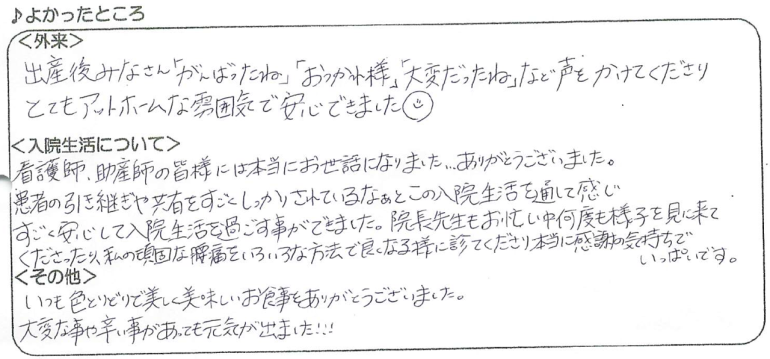 ♪よかったところ
<外来>
出産後みなさん「がんばったね」「おつかれ様」「大変だったね」など声をかけてくださり
とてもアットホームな雰囲気で安心できました☺
<入院生活について>
看護師、助産師の皆様には本当にお世話になりました…ありがとうございました。
患者の引き継ぎや共有をすごくしっかりされているなぁとこの入院生活を通して感じ
すごく安心して入院生活を過ごす事ができました。院長先生もお忙い中何度も様子を見に来て
くださったり、私の頑固な腰痛をいろいろな方法で良くなる様に診てくださり本当に感謝の気持ちで
いっぱいです。
<その他>
いつも色とりどりで美しく美味しいお食事をありがとうございました。
大変な事や辛い事があっても元気が出ました!!!